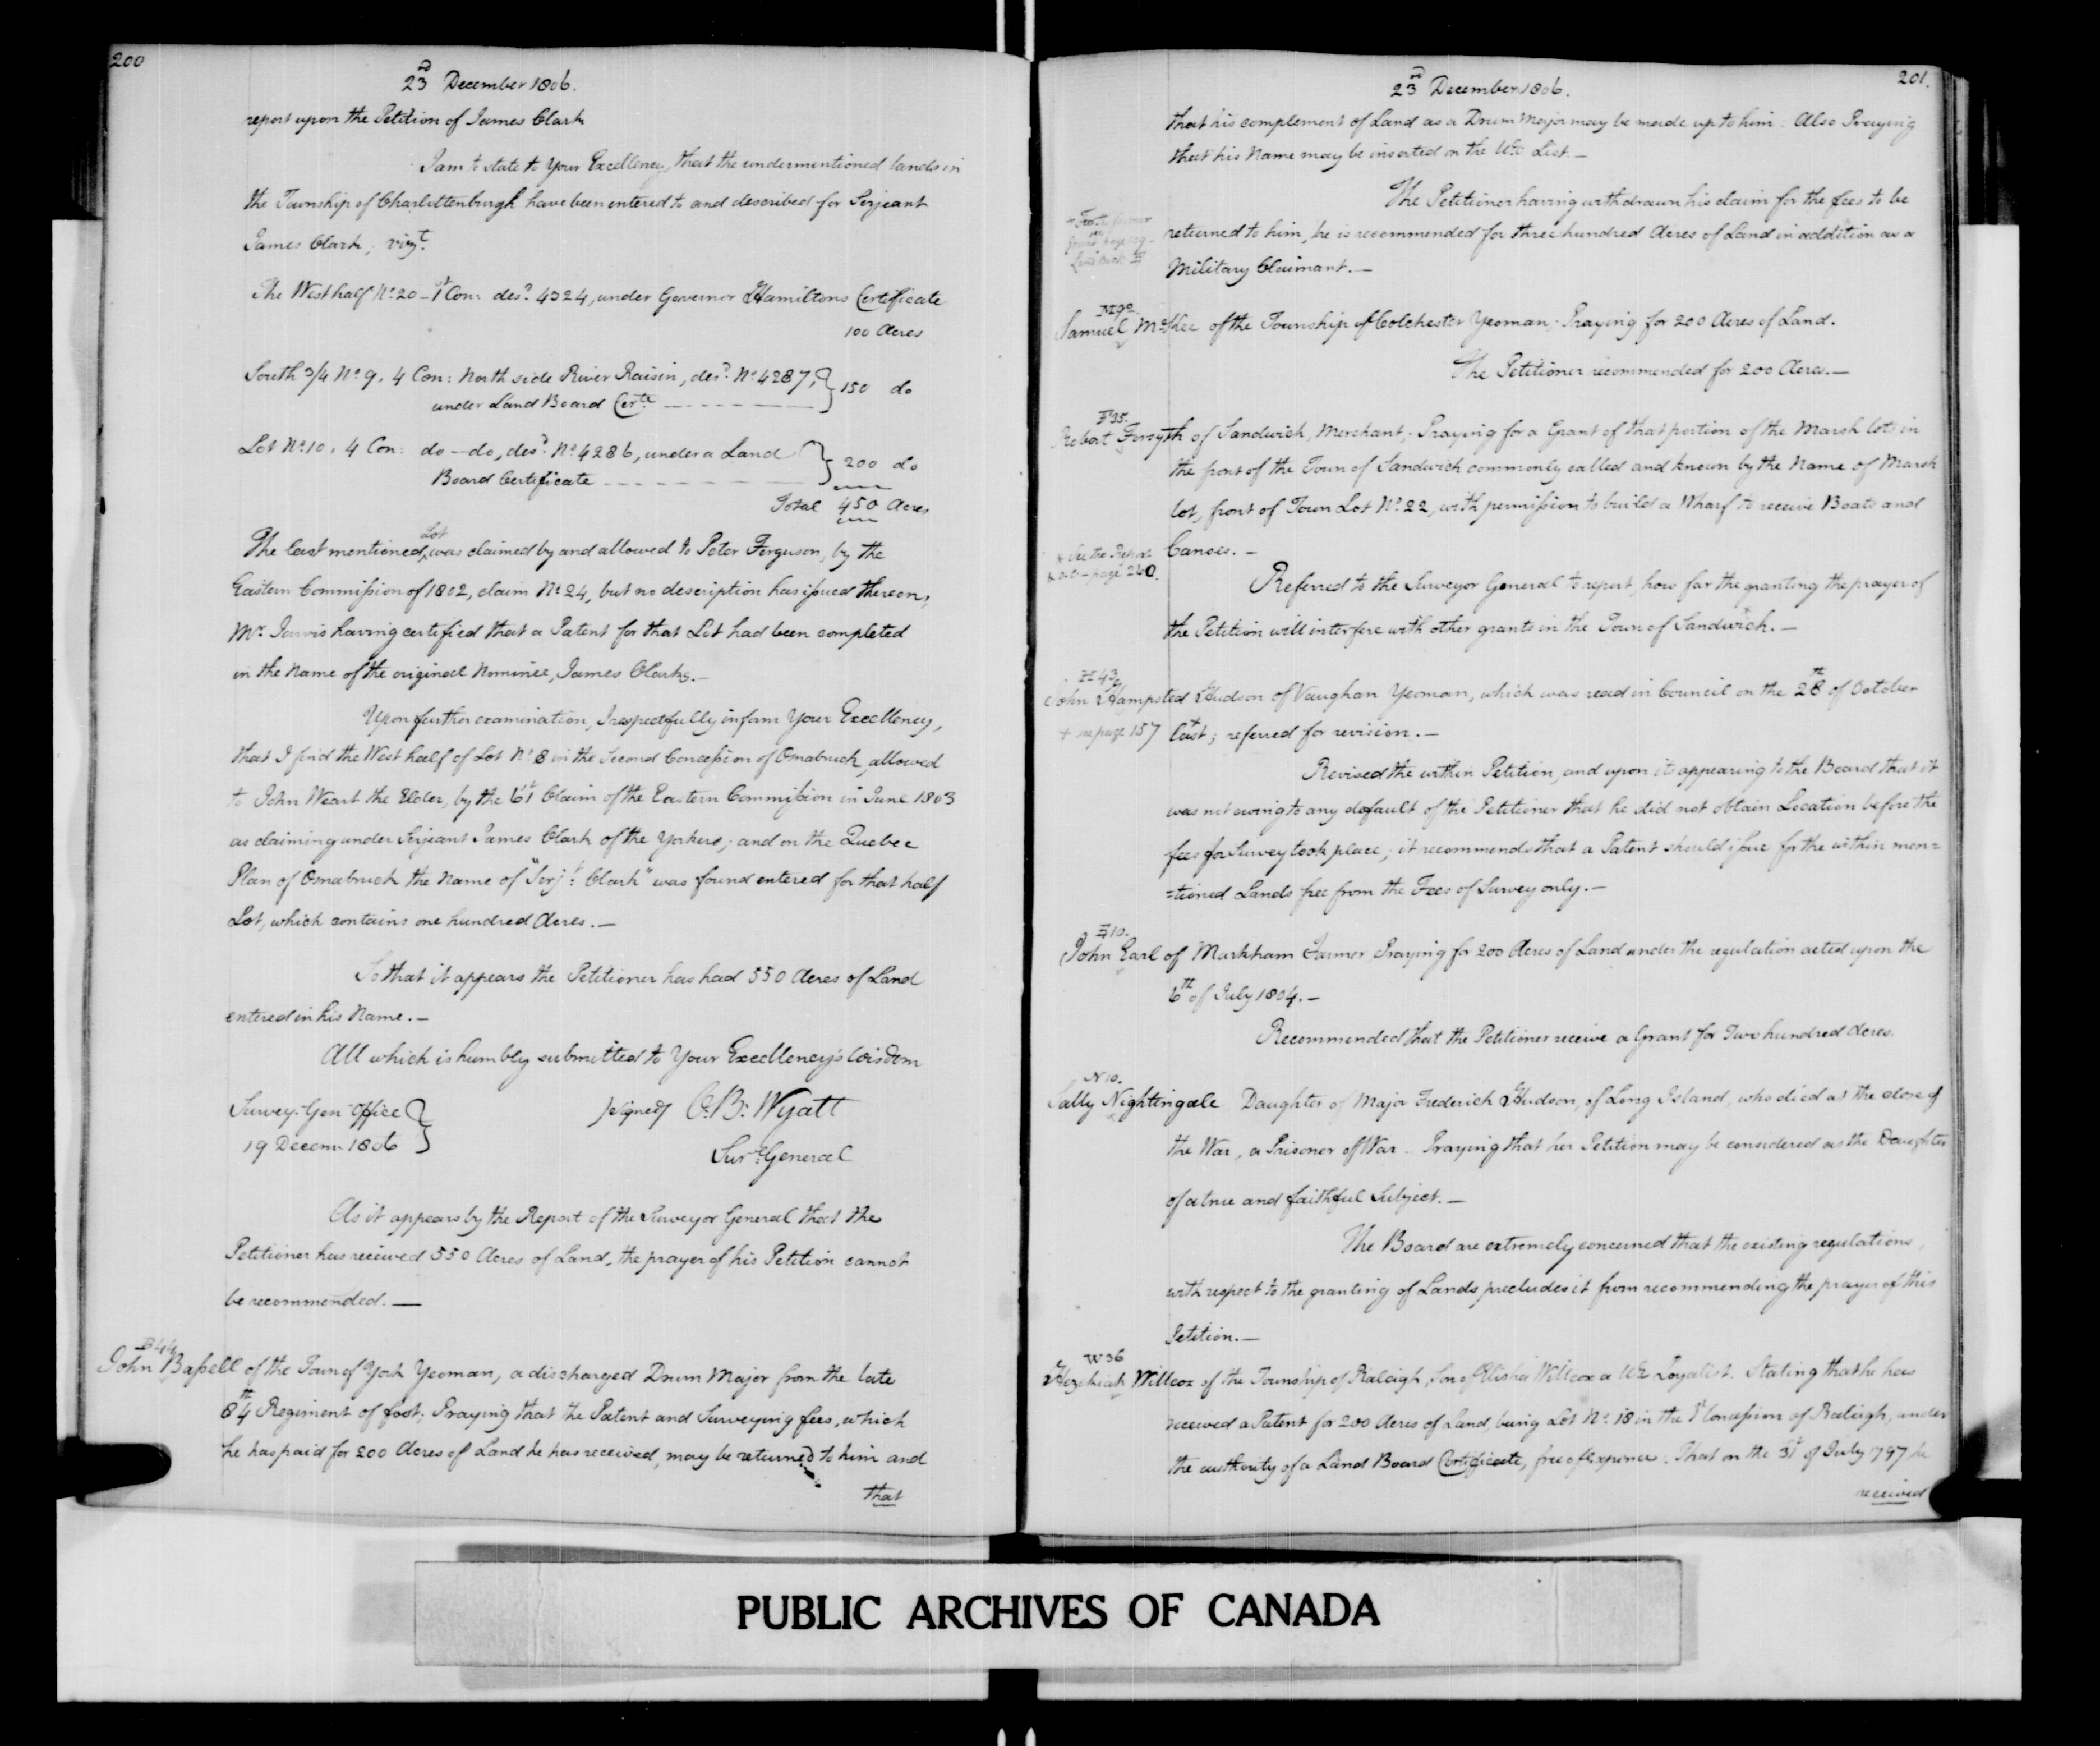 200
23rd December 1806.
report upon the Petition of James Clark
I am to state to Your Excellency, that the undermentioned lands in
the Township of Charlottenburgh have been entered to and described for Serjeant
James Clark; vizt.
The West half No. 20 - 1st Con: desd. 4324, under Governor Hamiltons Certificate
100 Acres
South 3/4 No. 9. 4 Con: North side River Raisin, desd. No. 4287,
under Land Board Certe. 150 do
Lot No. 10. 4 Con: do - do, desd. No. 4286, under a Land
Board Certificate 200 do
Total 450 Acres
The last mentioned Lot was claimed by and allowed to Peter Ferguson, by the
Eastern Commission of 1802, claim No. 24, but no description has issued thereon,
Mr. Jarvis having certified that a Patent for that Lot had been completed
in the Name of the original Nominee, James Clark.—
Upon further examination, I respectfully inform Your Excellency,
that I find the West half of Lot No. 8 in the Second Concession of Osnabruck, allowed
to John Weart the Elder, by the 61st Claim of the Eastern Commission in June 1803
as claiming under Serjeant James Clark of the Yorkers; and on the Quebec
Plan of Osnabruck the Name of "Serjt. Clark" was found entered for that half
Lot, which contains one hundred Acres.—
So that it appears the Petitioner has had 550 Acres of Land
entered in his Name.—
All which is humbly submitted to Your Excellency's Wisdom
Survey: Genl. Office
19 Decem: 1806
(signed) C. B. Wyatt
Surr. General
As it appears by the Report of the Surveyor General that the
Petitioner has received 550 Acres of Land, the prayer of his Petition cannot
be recommended.—
B 44
John Bassell of the Town of York Yeoman, a discharged Drum Major from the late
84th Regiment of foot: Praying that the Patent and Surveying fees, which
he has paid for 200 Acres of Land he has received, may be returned to him and
that
201.
23rd December 1806.
that his complement of Land as a Drum Major may be made up to him: Also Praying
that his Name may be inserted on the UE List.—
The Petitioner having withdrawn his claim for the fees to be
returned to him, he is recommended for three hundred Acres of Land in addition as a
Military Claimant.—
Samuel McKee of the Township of Colchester Yeoman; Praying for 200 Acres of Land.
The Petitioner recommended for 200 Acres.—
F 35.
Robert Forsyth of Sandwich, Merchant; Praying for a Grant of that portion of the Marsh lots in
the front of the Town of Sandwich commonly called and known by the Name of Marsh
lot, front of Town Lot No. 22, with permission to build a Wharf to receive Boats and
Canoes.—
page 240.
Referred to the Surveyor General to report, how far the granting the prayer of
the Petition will interfere with other grants in the Town of Sandwich.—
H 43
John Hampsted Hudson of Vaughan Yeoman, which was read in Council on the 28th of October
page 157
last; referred for revision.—
Revised the within Petition, and upon it appearing to the Board that it
was not owing to any default of the Petitioner that he did not obtain Location before the
fees for Survey took place; it recommends that a Patent should issue for the within men=
=tioned Lands free from the Fees of Survey only.—
E 10.
John Earl of Markham Farmer Praying for 200 Acres of Land under the regulation acted upon the
6th of July 1804.—
Recommended that the Petitioner receive a Grant for Two hundred Acres.
N 10.
Sally Nightingale Daughter of Major Frederick Hudson, of Long Island, who died at the close of
the War, a Prisoner of War - Praying that her Petition may be considered as the Daughter
of a true and faithful Subject.—
The Board are extremely concerned that the existing regulations,
with respect to the granting of Lands precludes it from recommending the prayer of this
Petition.—
W 36
Hezekiah Willcox of the Township of Raleigh, Son of Elisha Willcox a UE Loyalist. Stating that he has
received a Patent for 200 Acres of Land, being Lot No. 18 in the 1st Concession of Raleigh, under
the authority of a Land Board Certificate, free of Expence: That on the 31st of July 1797 he
received
PUBLIC ARCHIVES OF CANADA